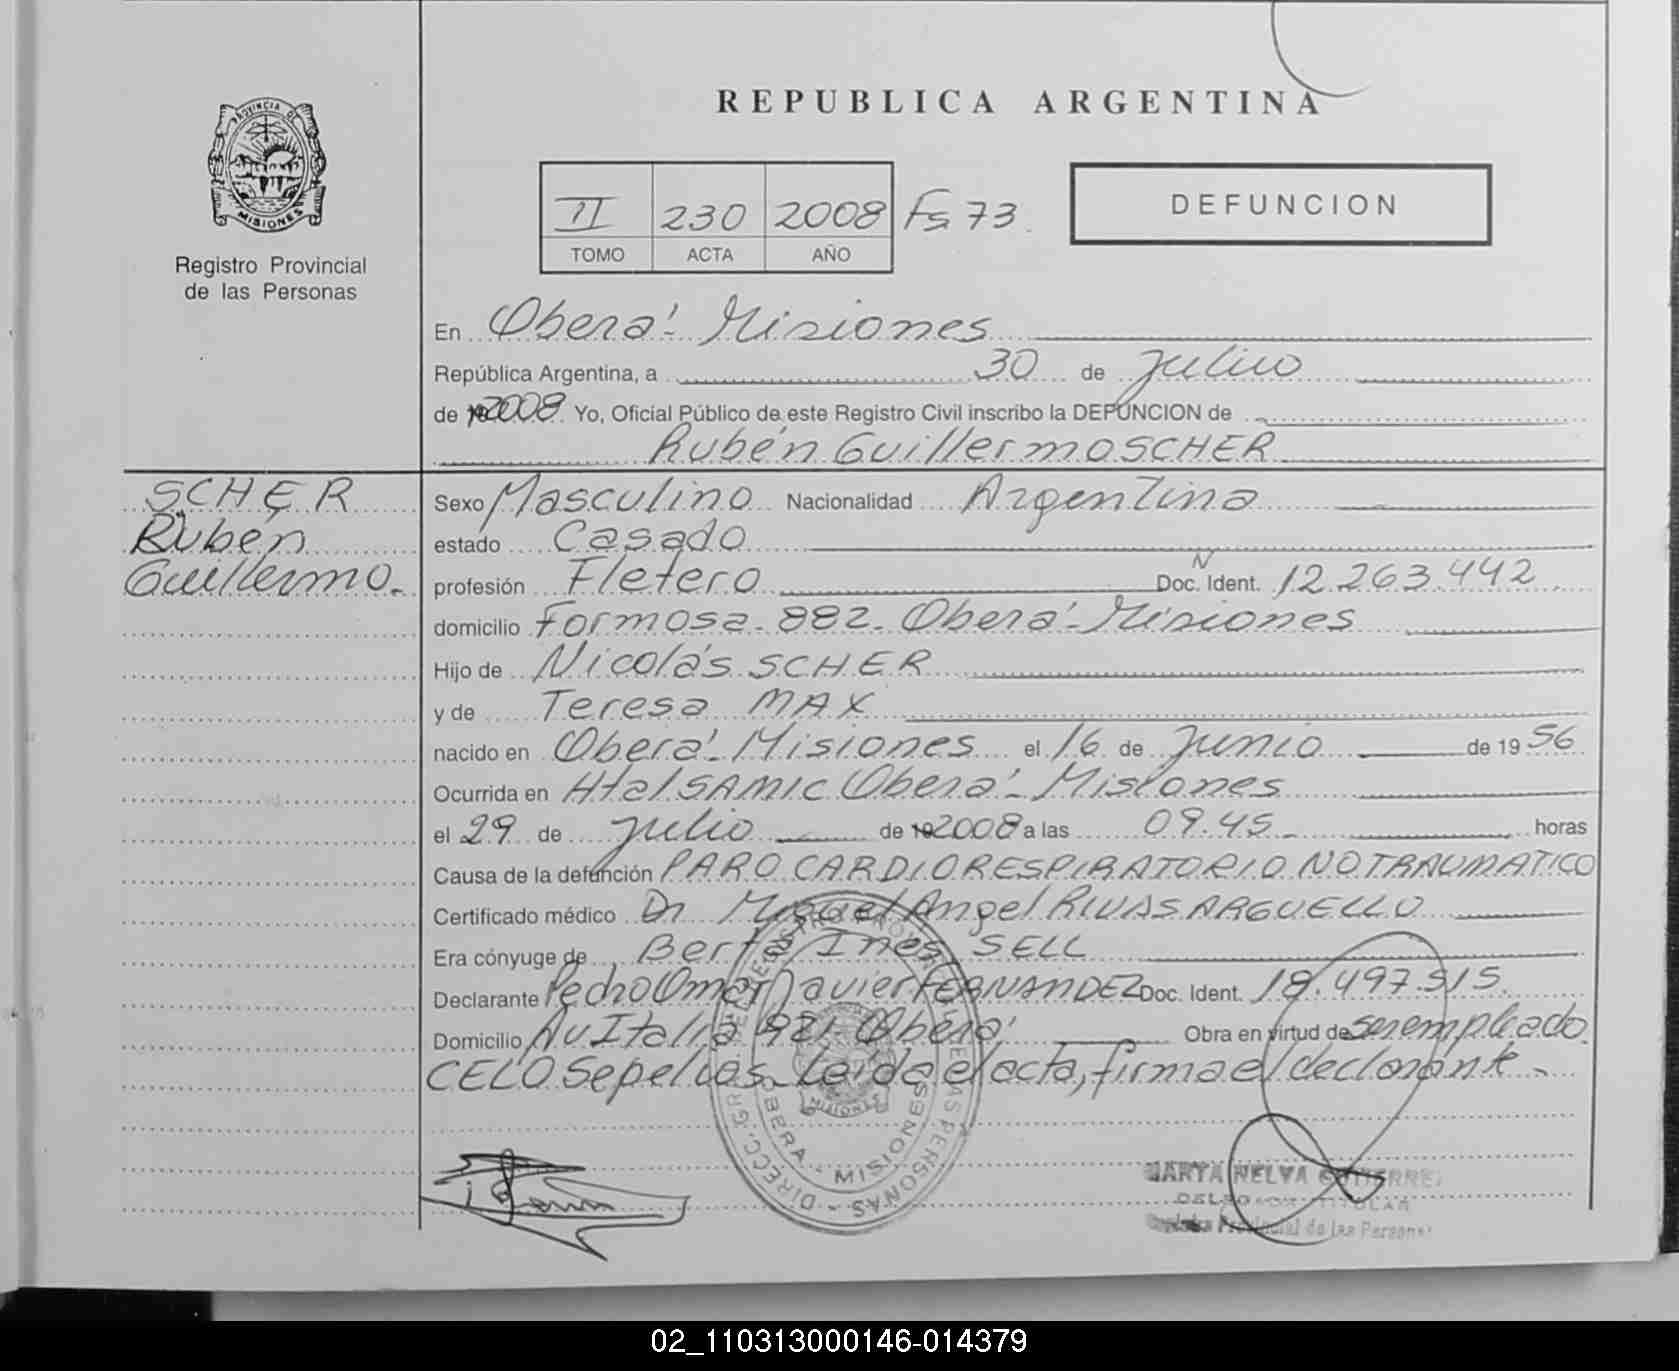 REPUBLICA ARGENTINA
PROVINCIA DE
MISIONES
Registro Provincial
de las Personas
II 230 2008 Fs 73
TOMO ACTA AÑO
DEFUNCION
En Oberá - Misiones
República Argentina, a 30 de Julio
de 2008 Yo, Oficial Público de este Registro Civil inscribo la DEFUNCION de
Rubén Guillermo SCHER
SCHER
Rubén
Guillermo.-
Sexo Masculino Nacionalidad Argentina
estado Casado
profesión Fletero Doc. N Ident. 12.263.442
domicilio Formosa - 882 - Oberá - Misiones
Hijo de Nicolás SCHER
y de Teresa MAX
nacido en Oberá - Misiones el 16 de Junio de 1956
Ocurrida en Htal SAMIC Oberá - Misiones
el 29 de Julio de 2008 a las 09.45 horas
Causa de la defunción PARO CARDIORESPIRATORIO NO TRAUMATICO
Certificado médico Dr Miguel Angel RIVAS ARGUELLO
Era cónyuge de Berta Ines SELL
Declarante Pedro Omar Javier FERNANDEZ Doc. Ident. 18.497.515.
Domicilio Av Italia 921 Oberá Obra en virtud de ser empleado
CELO Sepelios - Leída el acta, firma el declarante -
OBERA - MISIONES
DELEGADA TITULAR
Registro Provincial de las Personas
02_110313000146-014379